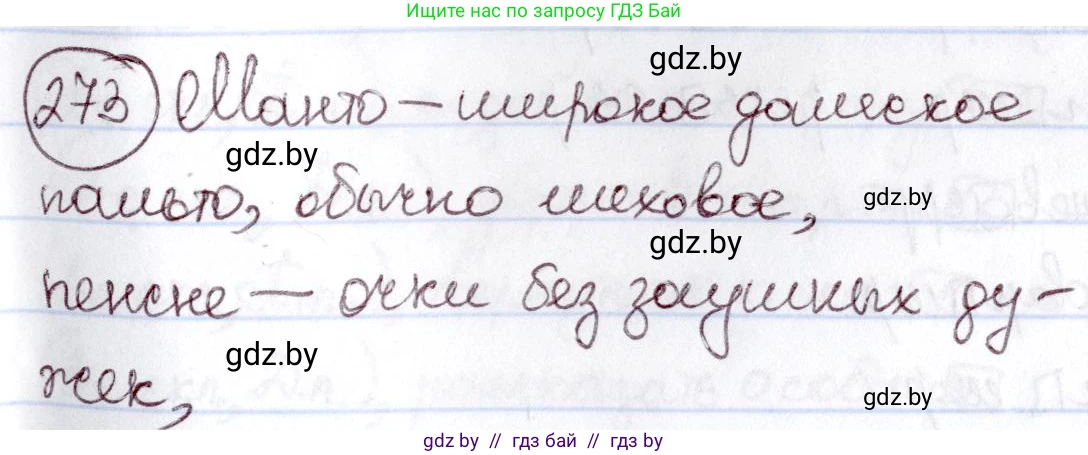 Ищите нас по запросу ГДЗ Бай
gdz.by
273 Манто – широкое дамское
gdz.by
пальто, обычно меховое,
gdz.by
gdz.by
пенсне – очки без заушных ду-
gdz.by
жек,
gdz.by
gdz.by // гдз бай // гдз by